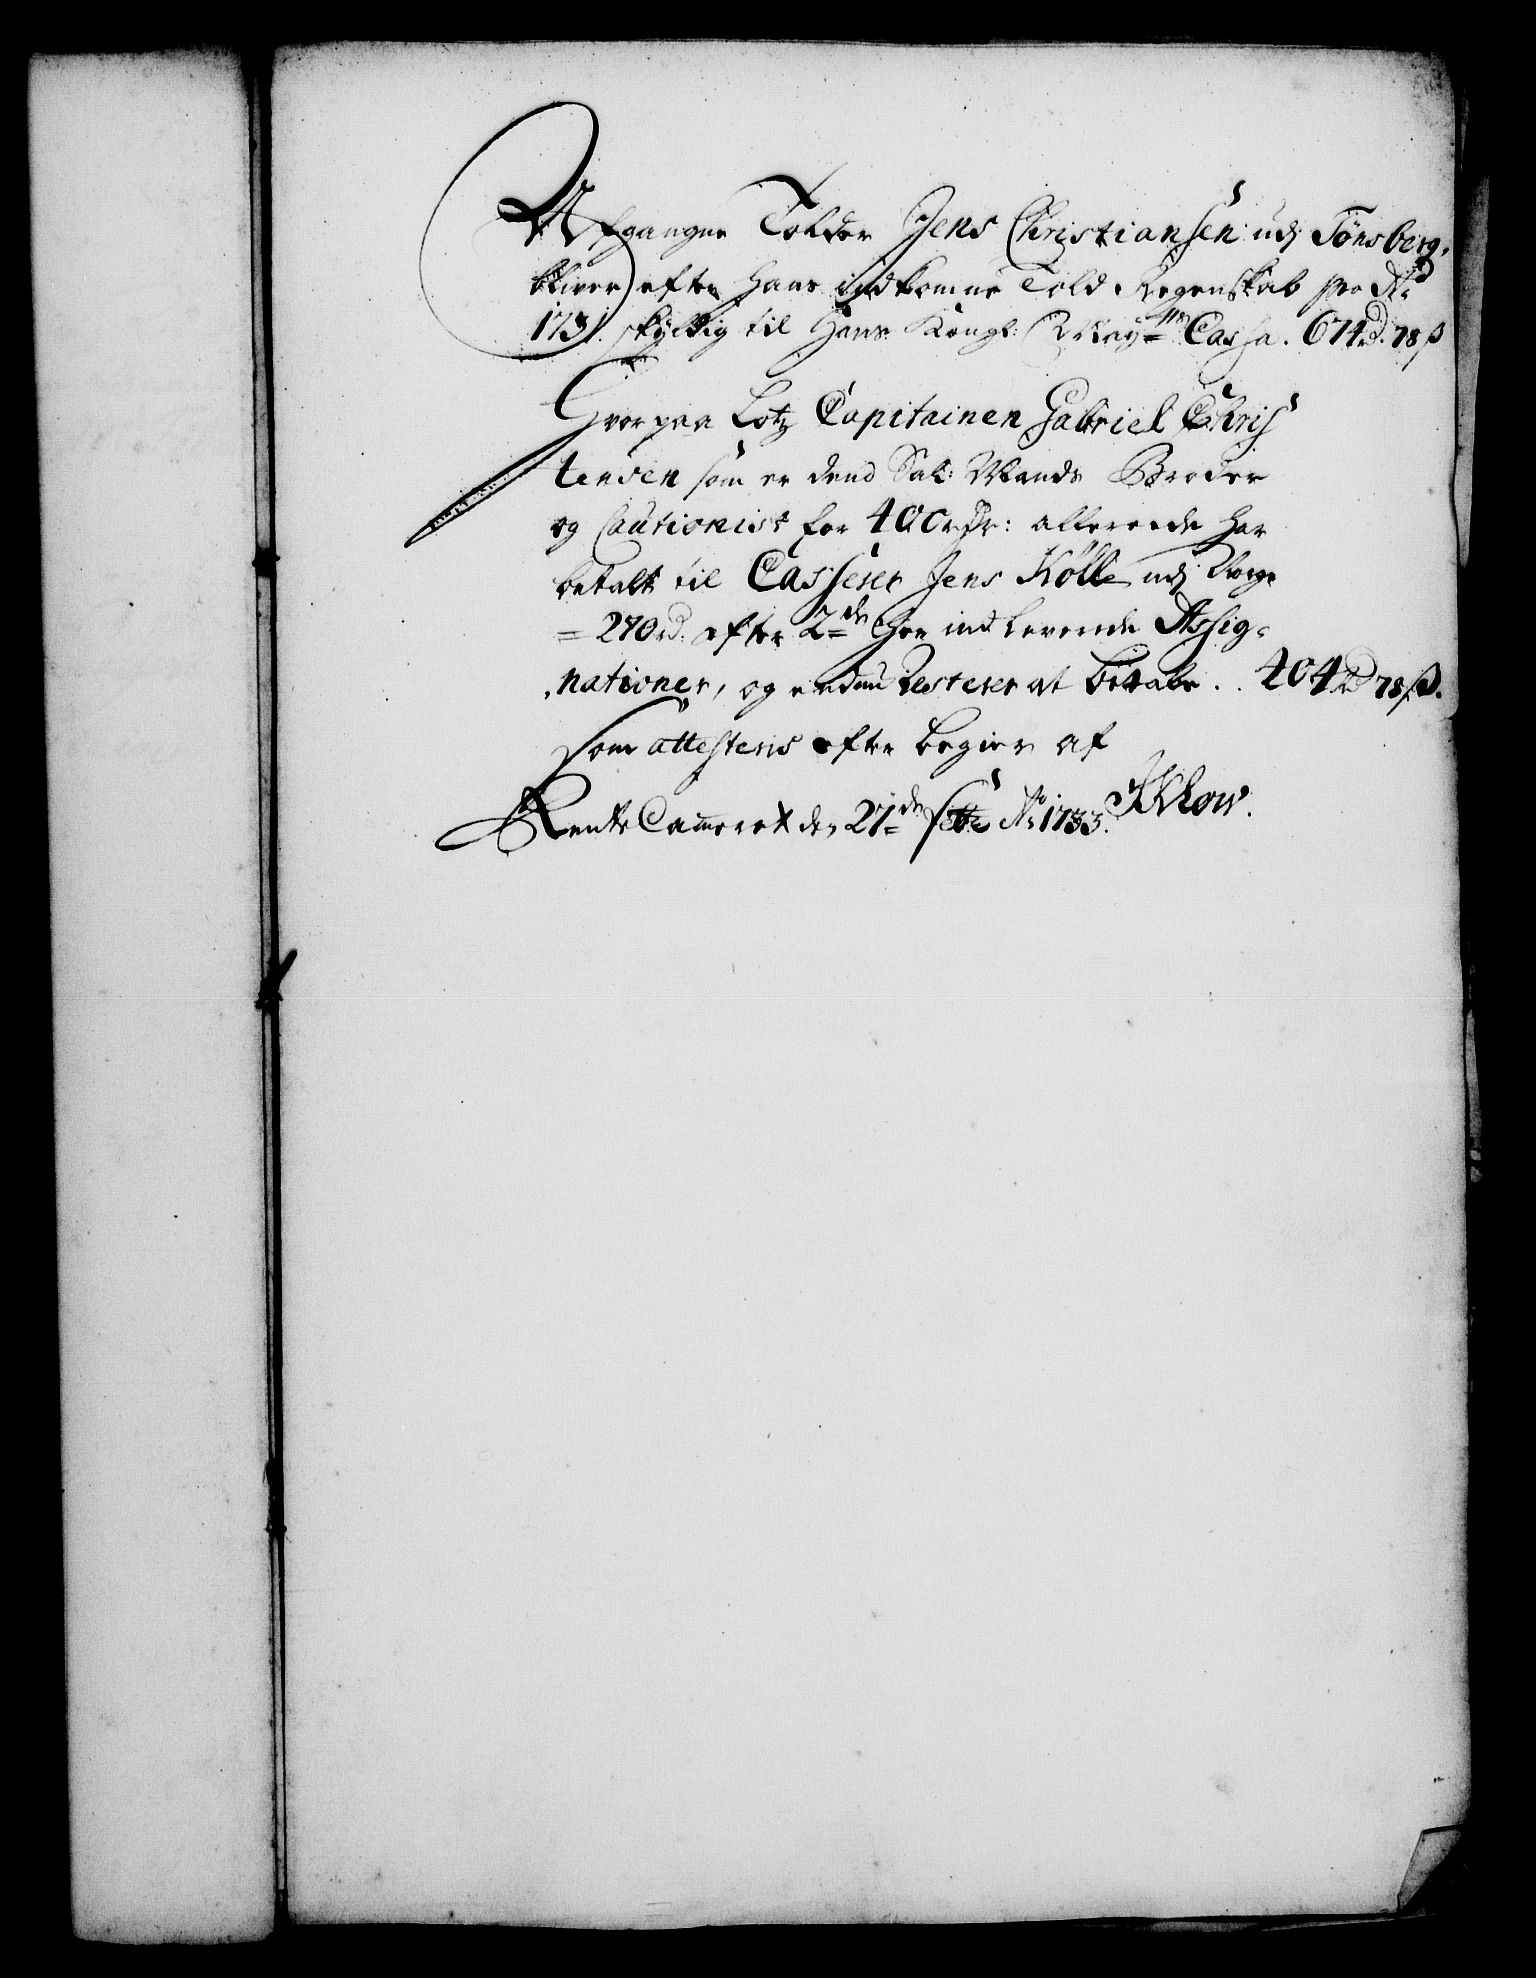 Afgangne Tolder Jens Christiansen udj Tönsberg,
bliver efter hans indkomne Told Regenskab pro Ao
1731. skyldig til Hans Kongl: May=ts Cassa. 674rd. 78ß
Hvorpaa Lotz Capitainen Gabriel Chris
tensen som er dend Sal: Mands Broder
og Cautionist for 400rdr: allereede har
betalt til Casserer Jens Kölle udj Norge
= 270rd: efter 2=de her indleverede Assig=
nationer, og endnu Resterer at betale . . 404rd 78ß.
Som attesteris efter begier af
RenteCammeret den 27=de Septbr Ao 1733.